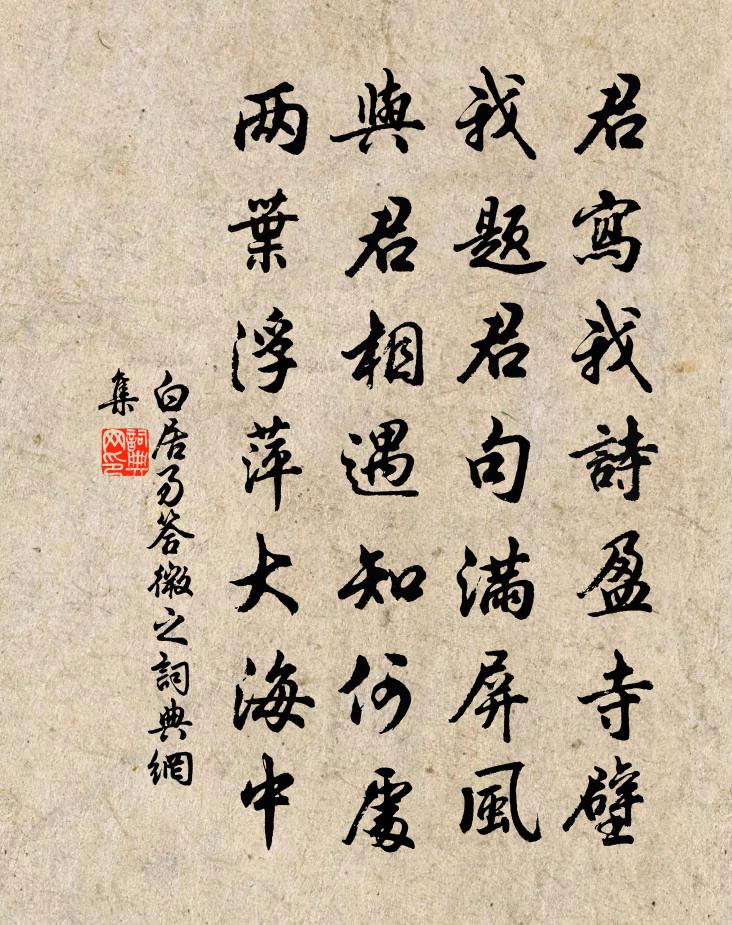 君寫我詩盈寺壁
我题君句满屏風
與君相遇知何處
两葉浮萍大海中
白居易答微之詞典網
集
詞典
网印